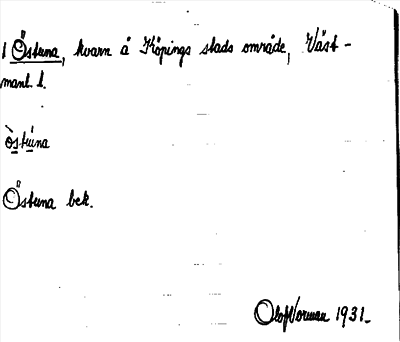 1 Östuna, kvarn å Köpings stads område, Väst-
manl. l.
òstúna
Östuna bek.
Olof Norman 1931.